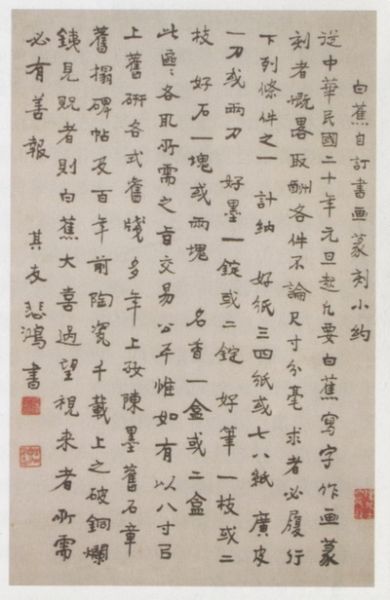 白蕉自訂書画篆刻小約
從中華民國二十年元旦起凡要白蕉寫字作画篆
刻者概畧取酬各件不論尺寸分毫求者必履行
下列條件之一 計納 好紙三四紙或七八紙 廣皮
一刀或兩刀 好墨一錠或二錠 好筆一枝或二
枝 好石一塊或兩塊 名香一盒或二盒
此區〻各取所需之旨交易公平惟如有以八寸㠯
上舊研各式舊牋多年上陳墨舊石章
舊搨碑帖及百年前陶瓷千載上之破銅爛
銕見貺者則白蕉大喜過望視来者所需
必有善報 其友悲鴻書